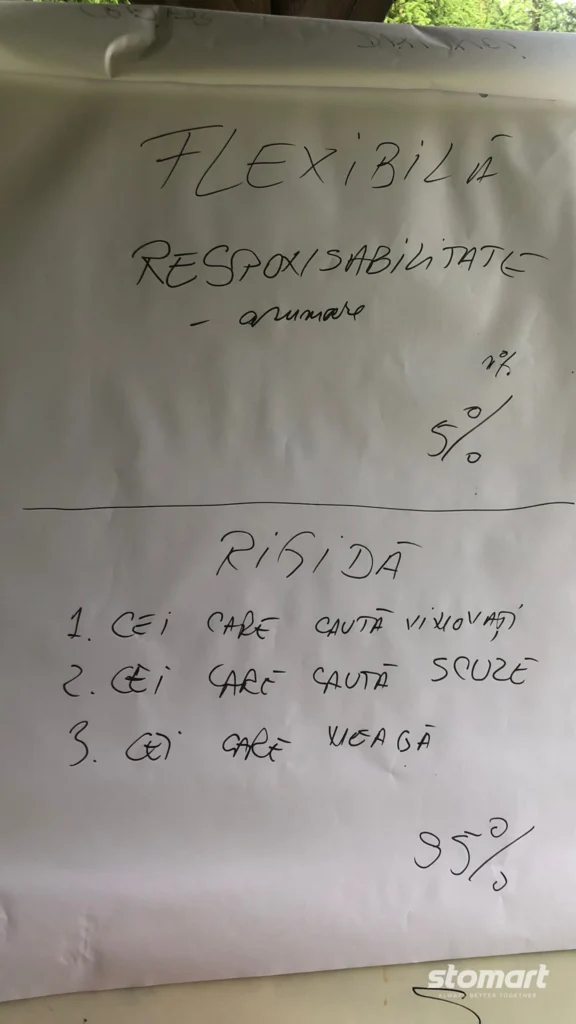 FLEXIBILĂ
RESPONSABILITATE
- asumare
1%
5%
RIGIDĂ
1. CEI CARE CAUTĂ VINOVAȚI
2. CEI CARE CAUTĂ SCUZE
3. CEI CARE NEAGĂ
95%
stomart
ALWAYS BETTER TOGETHER